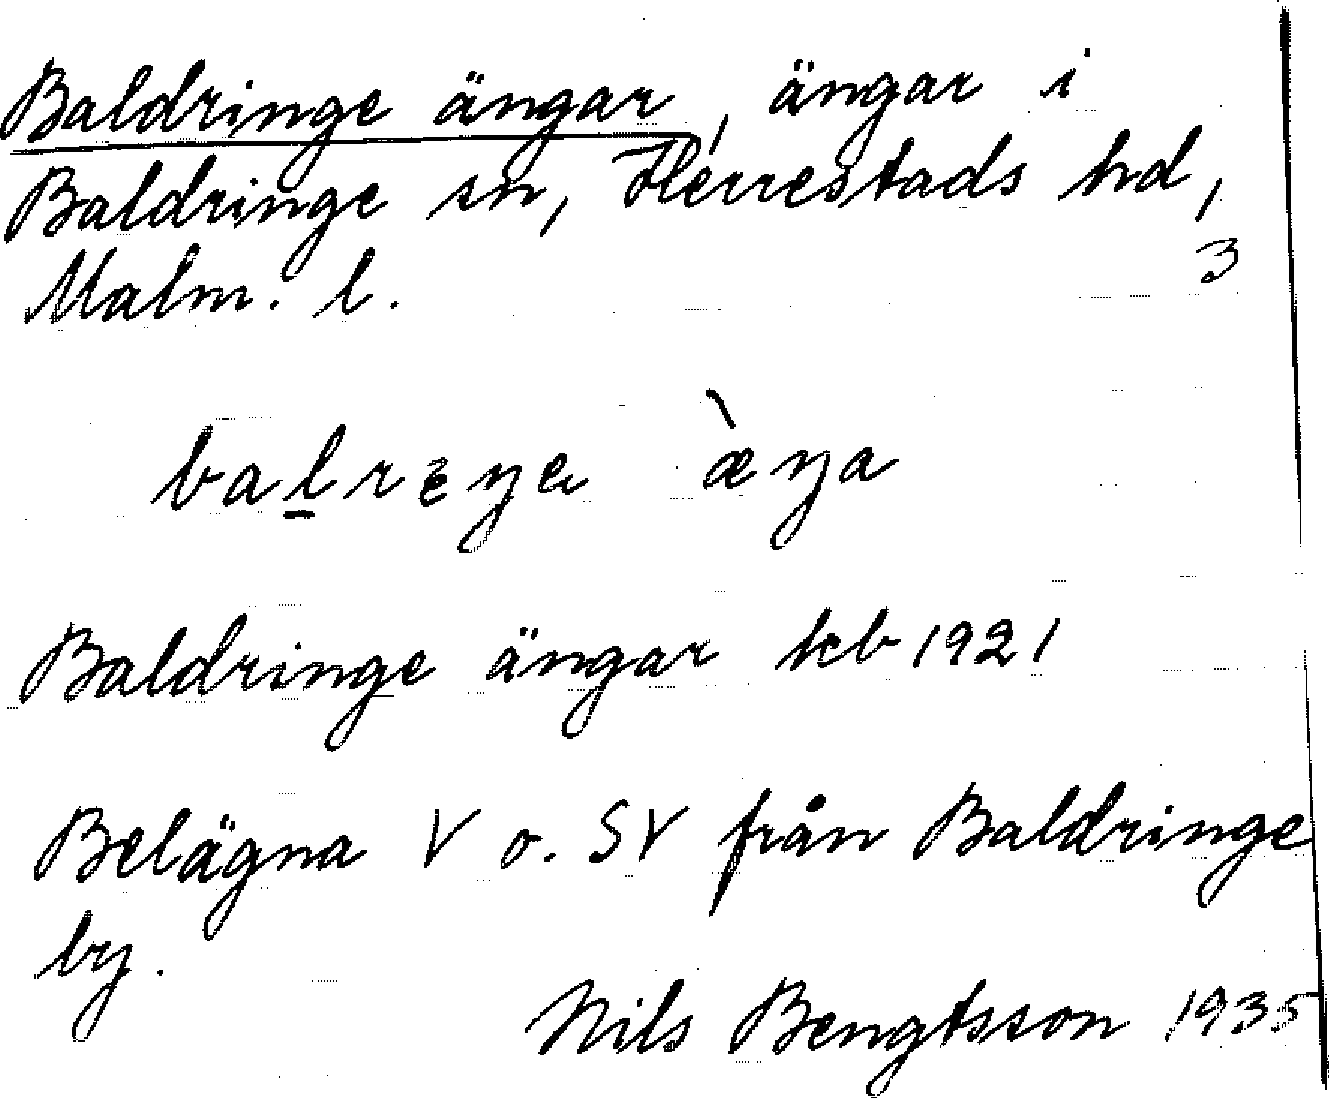 Baldringe ängar, ängar i
Baldringe sn, Herrestads hd,
Malm. l.
3
Baldringe ängar kb 1921
Belägna V o. SV från Baldringe
by.
Nils Bengtsson 1935